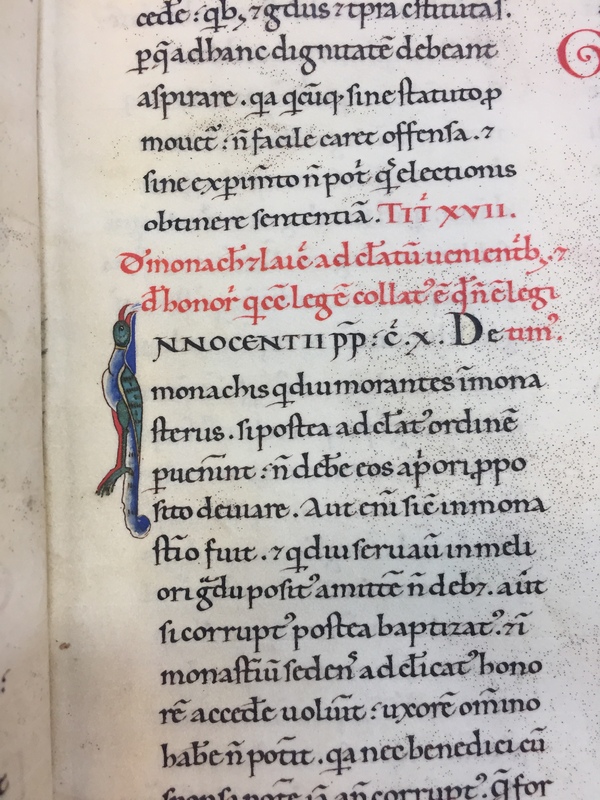 cedẽ : qb; ⁊ gͣdus ⁊ tp̄ra cſtitutaſ.
ꝑ q̃ ad hanc dignitatẽ debeant
aſpirare . qa q̃cũq; ſine ſtatuto ꝓ
mouet᷑ : ñ facile caret offenſa . ⁊
ſine exꝑim̃to ñ pot̃ q̾ electionis
obtinere ſententiã . TIT̃ XVII.
D̾ monach̵ ⁊ laic̾ ad cl̵atũ uenientib; ⁊
d̵ honor̾ q̃ cc̃lege collatꝰ ẽ q̾ ñ ẽ legi
INNOCENTII p̄p̄ : c̾ . x . De timꝰ.
monachis q diu morantes ĩ mona
ſteriis . ſi poſtea ad cl̵atꝰ ordinẽ
ꝑuenĩnt : ñ deb̵e eos a p̾ori ꝓpo
ſito deuiare . Aut eni ſic̃ in mona
ſtĩo fuit . ⁊ q diu ſeruaũ in meli
ori gͣdu poſitꝰ amittẽ ñ deb⁊ . aũt
ſi corruptꝰ poſtea baptizatꝰ . ⁊ ĩ
monaſt̃iũ ſedenˢ ad cl̵icatꝰ hono
rẽ acced̵e uolũit : uxorẽ om̃ino
hab̵e ñ pot̃it . qa nec benedici cũ
ſponſa pot̃e iã añ corruptꝰ . q̃ for